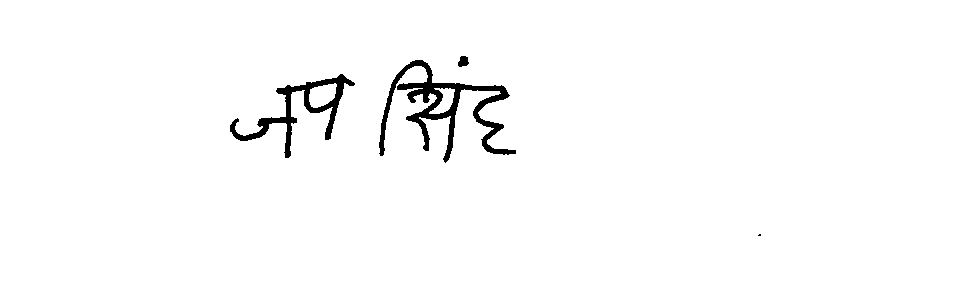 जप सिंह